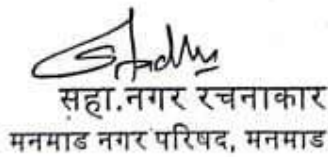 सहा.नगर रचनाकार
मनमाड नगर परिषद, मनमाड